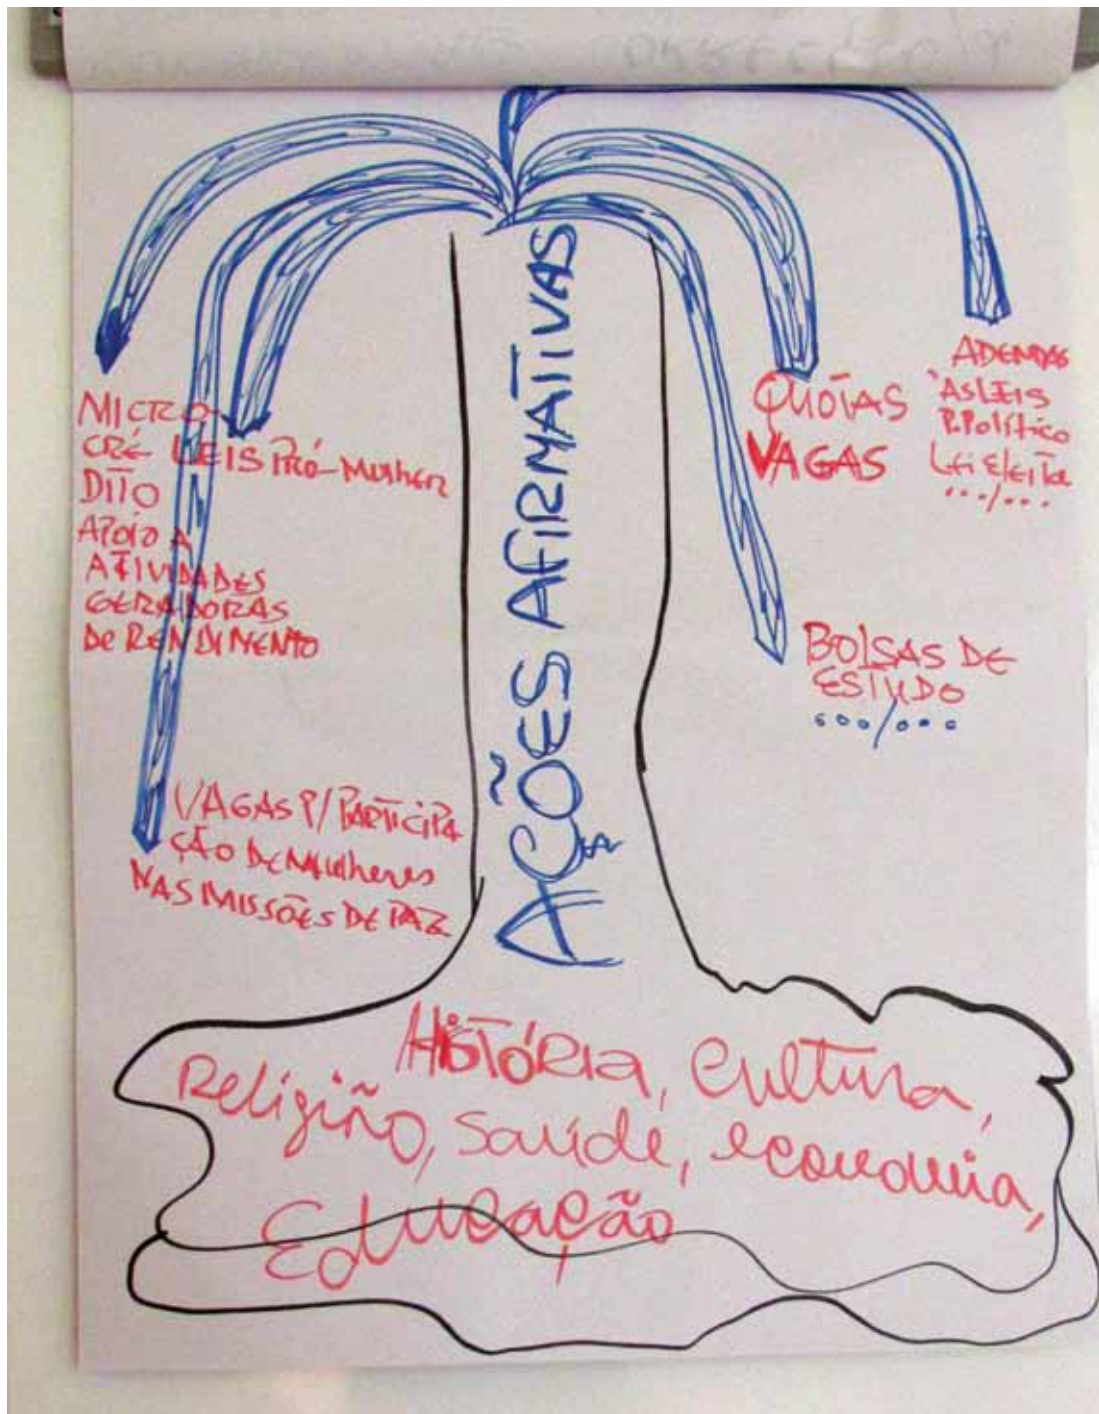 AÇÕES AFIRMATIVAS
MICRO
CRÉ-
DITO
APOIO A
ATIVIDADES
GERADORAS
DE RENDIMENTO
LEIS PRÓ-MULHER
VAGAS P/ PARTICIPA
ÇÃO DE MULHERES
NAS MISSÕES DE PAZ
QUOTAS
VAGAS
ADENDAS
ÀS LEIS
P.POLÍTICO
LEI ELEITA
.../...
BOLSAS DE
ESTUDO
.../...
HISTÓRIA, Cultura,
Religião, Saúde, economia,
Educação